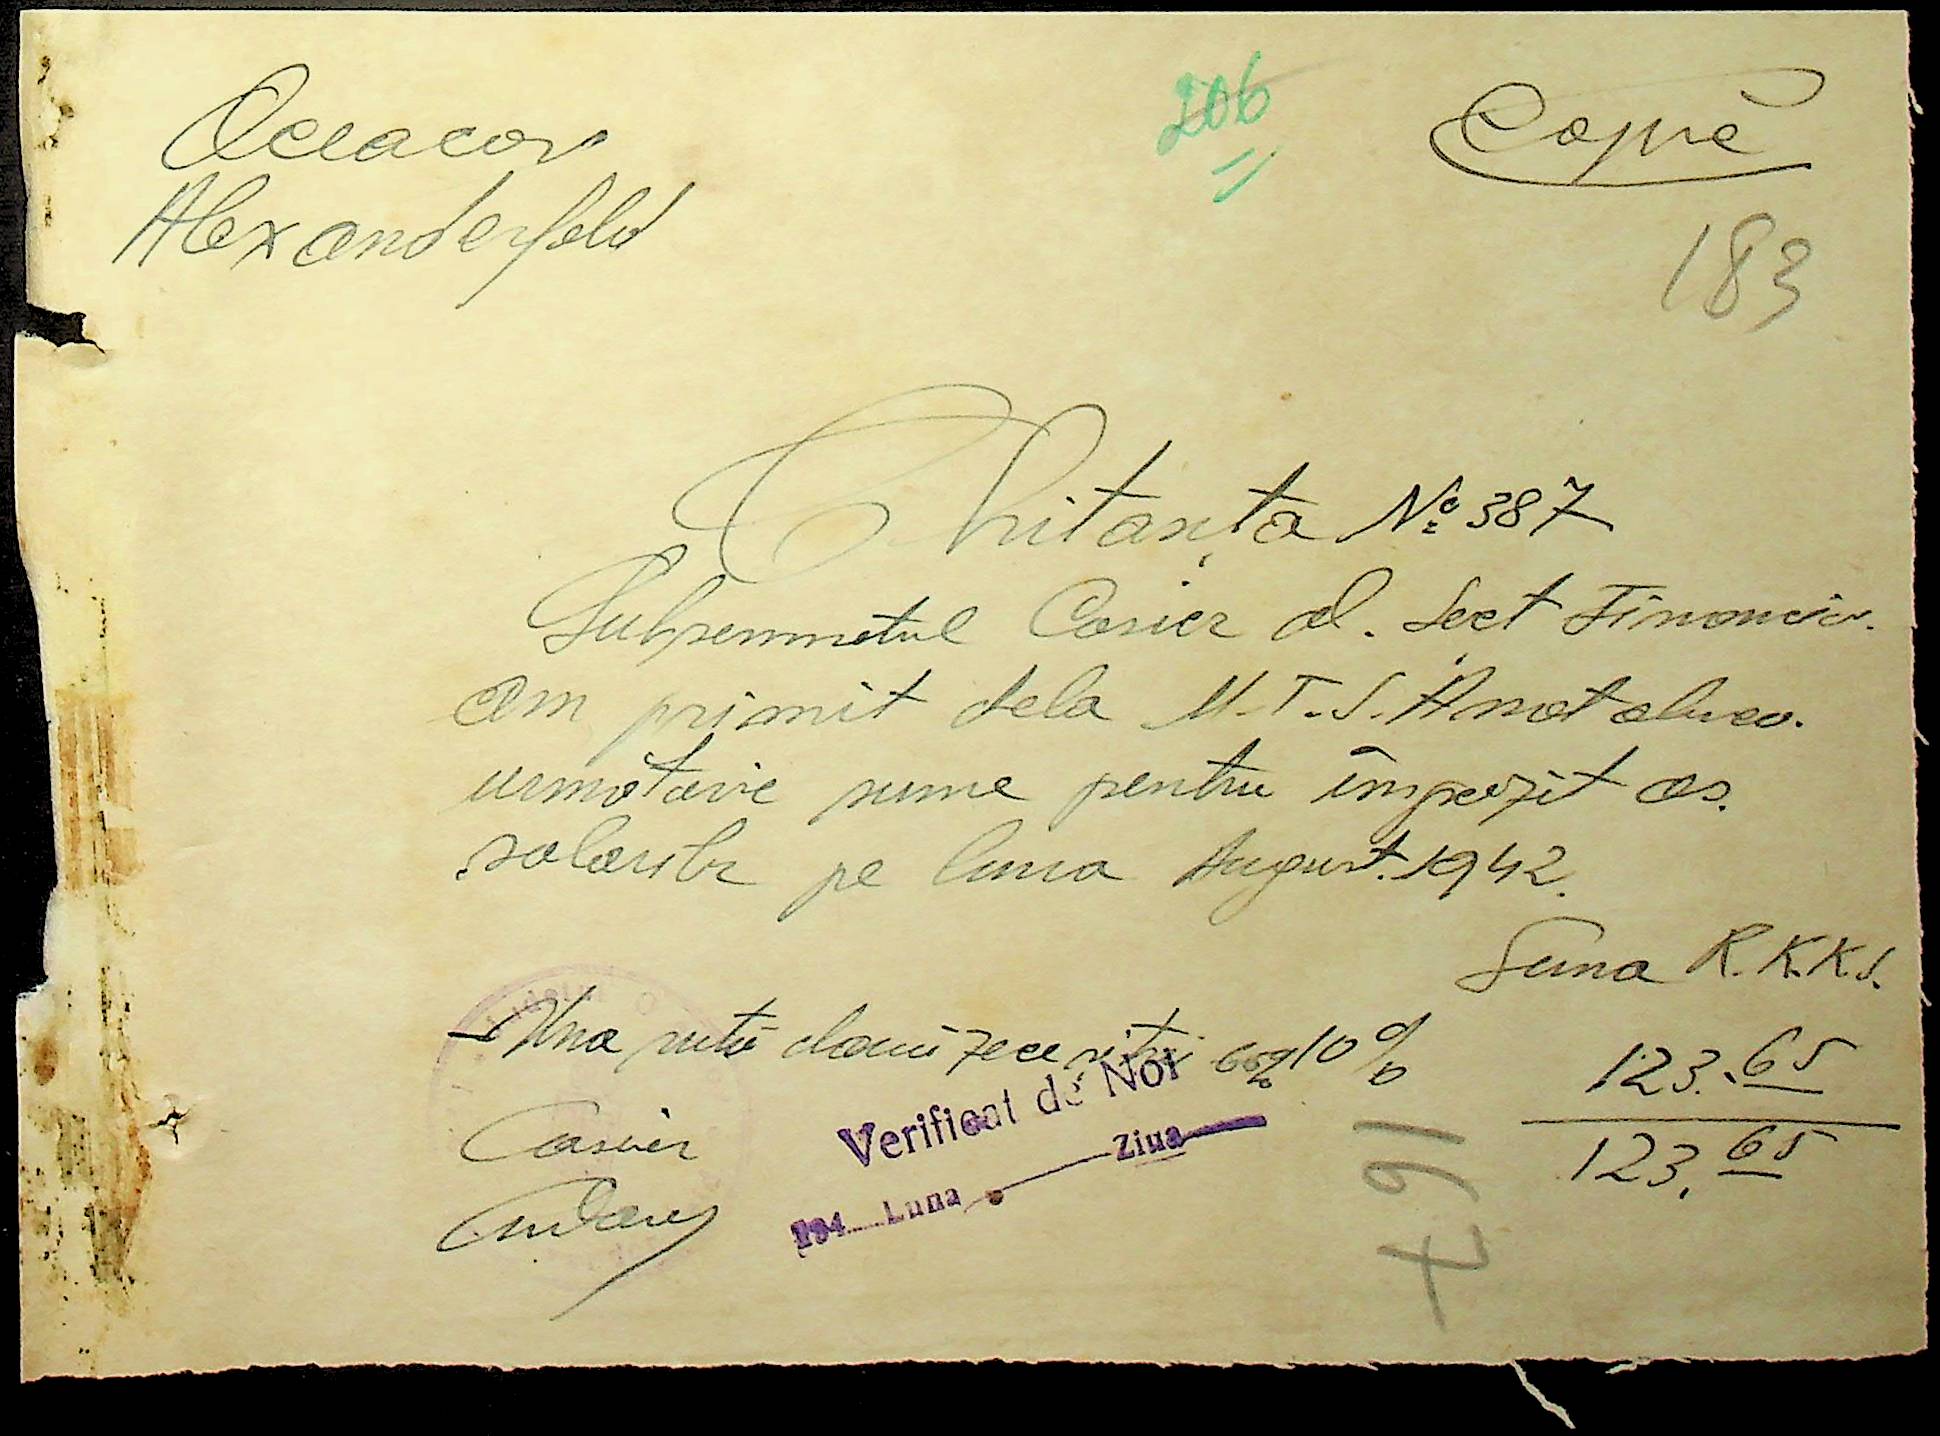 Oceacov
Alexanderfeld
206
Copie
183
Chitanța № 387
Subsemnatul Casier al. Sect Financiar.
am primit dela M.T.S. Anatolievca.
urmotoare sume pentru impozit as.
salariilor pe luna August. 1942.
Suma R.K.K.S.
Una sută douăzece și trei 65 10%
123.65
123.65
Casier
Verificat de Noi
194 Luna Ziua
167